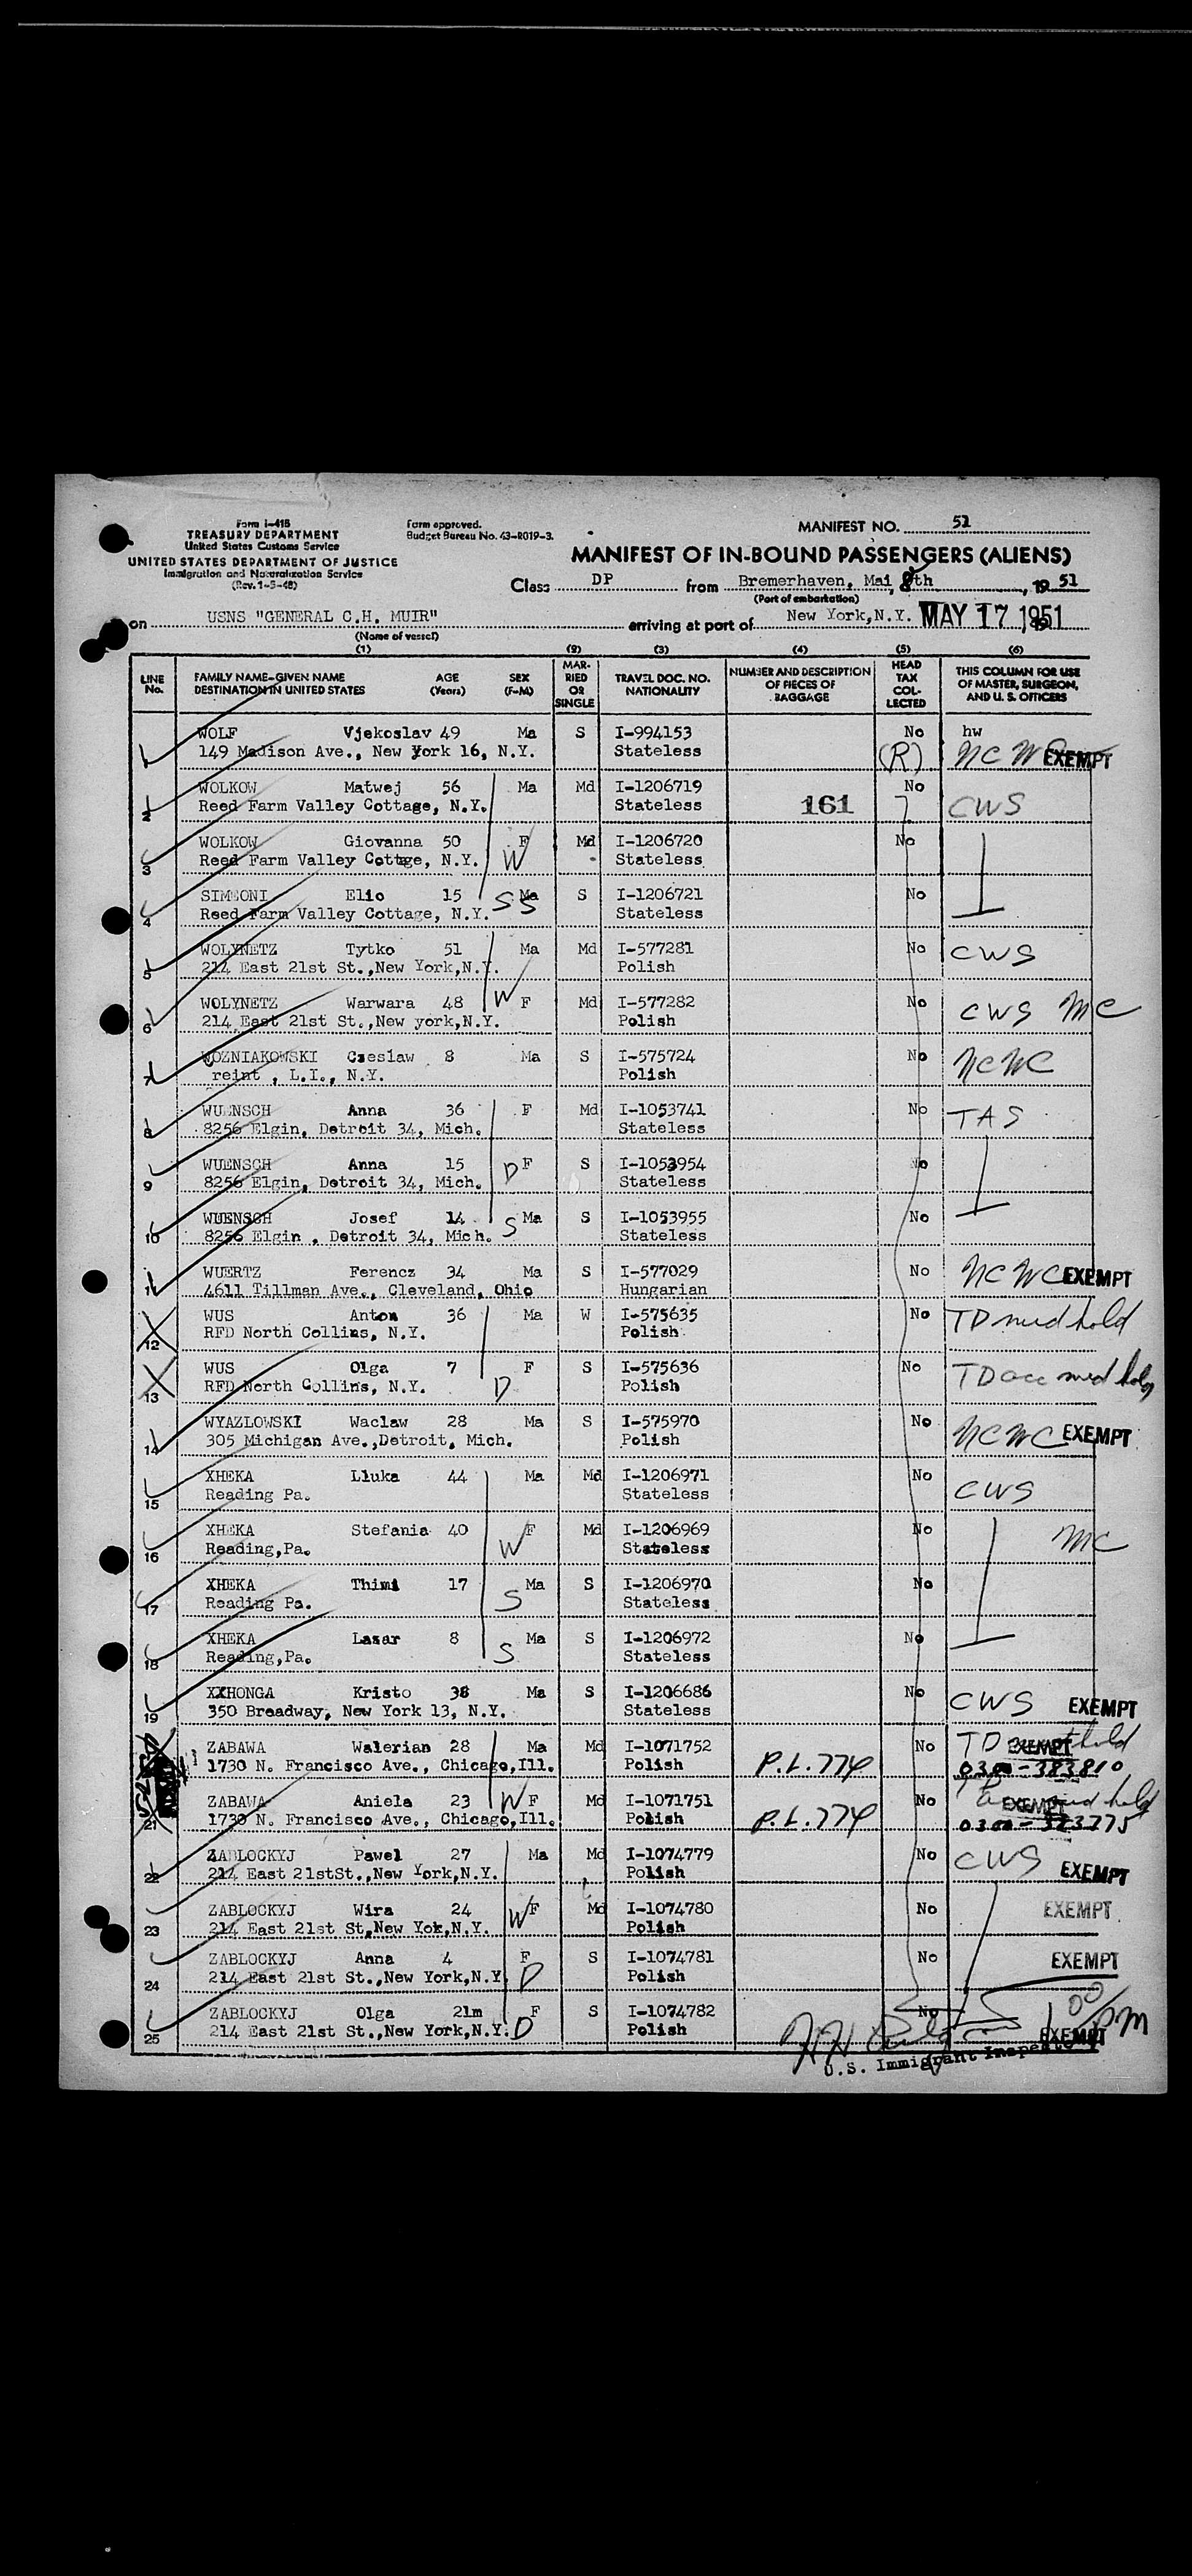 Form I-418
TREASURY DEPARTMENT
United States Customs Service
UNITED STATES DEPARTMENT OF JUSTICE
Immigration and Naturalization Service
(Rev. 1-3-48)
Form approved.
Budget Bureau No. 43-R019-3.
MANIFEST NO. 51
MANIFEST OF IN-BOUND PASSENGERS (ALIENS)
Class DP from Bremerhaven, Mai, 8th, 1951
(Port of embarkation)
on USNS "GENERAL C.H. MUIR" arriving at port of New York, N.Y. MAY 17 1951
(Name of vessel)
(1) (2) (3) (4) (5) (6)
LINE No. FAMILY NAME-GIVEN NAME DESTINATION IN UNITED STATES AGE (Years) SEX (F-M) MARRIED OR SINGLE TRAVEL DOC. NO. NATIONALITY NUMBER AND DESCRIPTION OF PIECES OF BAGGAGE HEAD TAX COLLECTED THIS COLUMN FOR USE OF MASTER, SURGEON, AND U. S. OFFICERS
WOLF Vjekoslav 49 Ma S I-994153 No hw
1 149 Madison Ave., New York 16, N.Y. Stateless (R) NCWC EXEMPT
WOLKOW Matwej 56 Ma Md I-1206719 No
2 Reed Farm Valley Cottage, N.Y. Stateless 161 CWS
WOLKOW Giovanna 50 F Md I-1206720 No
3 Reed Farm Valley Cottge, N.Y. W Stateless
SIMEONI Elio 15 Ma S I-1206721 No
4 Reed Farm Valley Cottage, N.Y. SS Stateless
WOLYNETZ Tytko 51 Ma Md I-577281 No CWS
5 214 East 21st St.,New York,N.Y. Polish
WOLYNETZ Warwara 48 W F Md I-577282 No CWS MC
6 214 East 21st St.,New york,N.Y. Polish
WOZNIAKOWSKI Czeslaw 8 Ma S I-575724 No NCWC
7 reint , L.I., N.Y. Polish
WUENSCH Anna 36 F Md I-1053741 No TAS
8 8256 Elgin, Detroit 34, Mich. Stateless
WUENSCH Anna 15 D F S I-1053954 No
9 8256 Elgin, Detroit 34, Mich. Stateless
WUENSCH Josef 14 S Ma S I-1053955 No
10 8256 Elgin , Detroit 34, Mich. Stateless
WUERTZ Ferencz 34 Ma S I-577029 No NCWC EXEMPT
11 4611 Tillman Ave., Cleveland, Ohio Hungarian
WUS Anton 36 Ma W I-575635 No TD med hold
12 RFD North Collins, N.Y. Polish
WUS Olga 7 F S I-575636 No TD acc med hold
13 RFD North Collins, N.Y. D Polish
WYAZLOWSKI Waclaw 28 Ma S I-575970 No NCWC EXEMPT
14 305 Michigan Ave.,Detroit, Mich. Polish
XHEKA Lluka 44 Ma Md I-1206971 No CWS
15 Reading Pa. Stateless
XHEKA Stefania 40 F Md I-1206969 No MC
16 Reading,Pa. W Stateless
XHEKA Thimi 17 Ma S I-1206970 No
17 Reading Pa. S Stateless
XHEKA Lasar 8 Ma S I-1206972 No
18 Reading,Pa. S Stateless
XXHONGA Kristo 38 Ma S I-1206686 No CWS EXEMPT
19 350 Broadway, New York 13, N.Y. Stateless
ZABAWA Walerian 28 Ma Md I-1071752 No TD hold EXEMPT
1730 N. Francisco Ave., Chicago,Ill. Polish P.L.774 0300-383810
ZABAWA Aniela 23 W F Md I-1071751 No med hold EXEMPT
21 1730 N. Francisco Ave., Chicago,Ill. Polish P.L.774
ZABLOCKYJ Pawel 27 Ma Md I-1074779 No CWS EXEMPT
22 214 East 21stSt.,New York,N.Y. Polish
ZABLOCKYJ Wira 24 W F Md I-1074780 No EXEMPT
23 214 East 21st St,New Yok,N.Y. Polish
ZABLOCKYJ Anna 4 F S I-1074781 No EXEMPT
24 214 East 21st St.,New York,N.Y. D Polish
ZABLOCKYJ Olga 21m F S I-1074782 No 1 00 PM
25 214 East 21st St.,New York,N.Y. D Polish EXEMPT
U.S. Immigrant Inspector